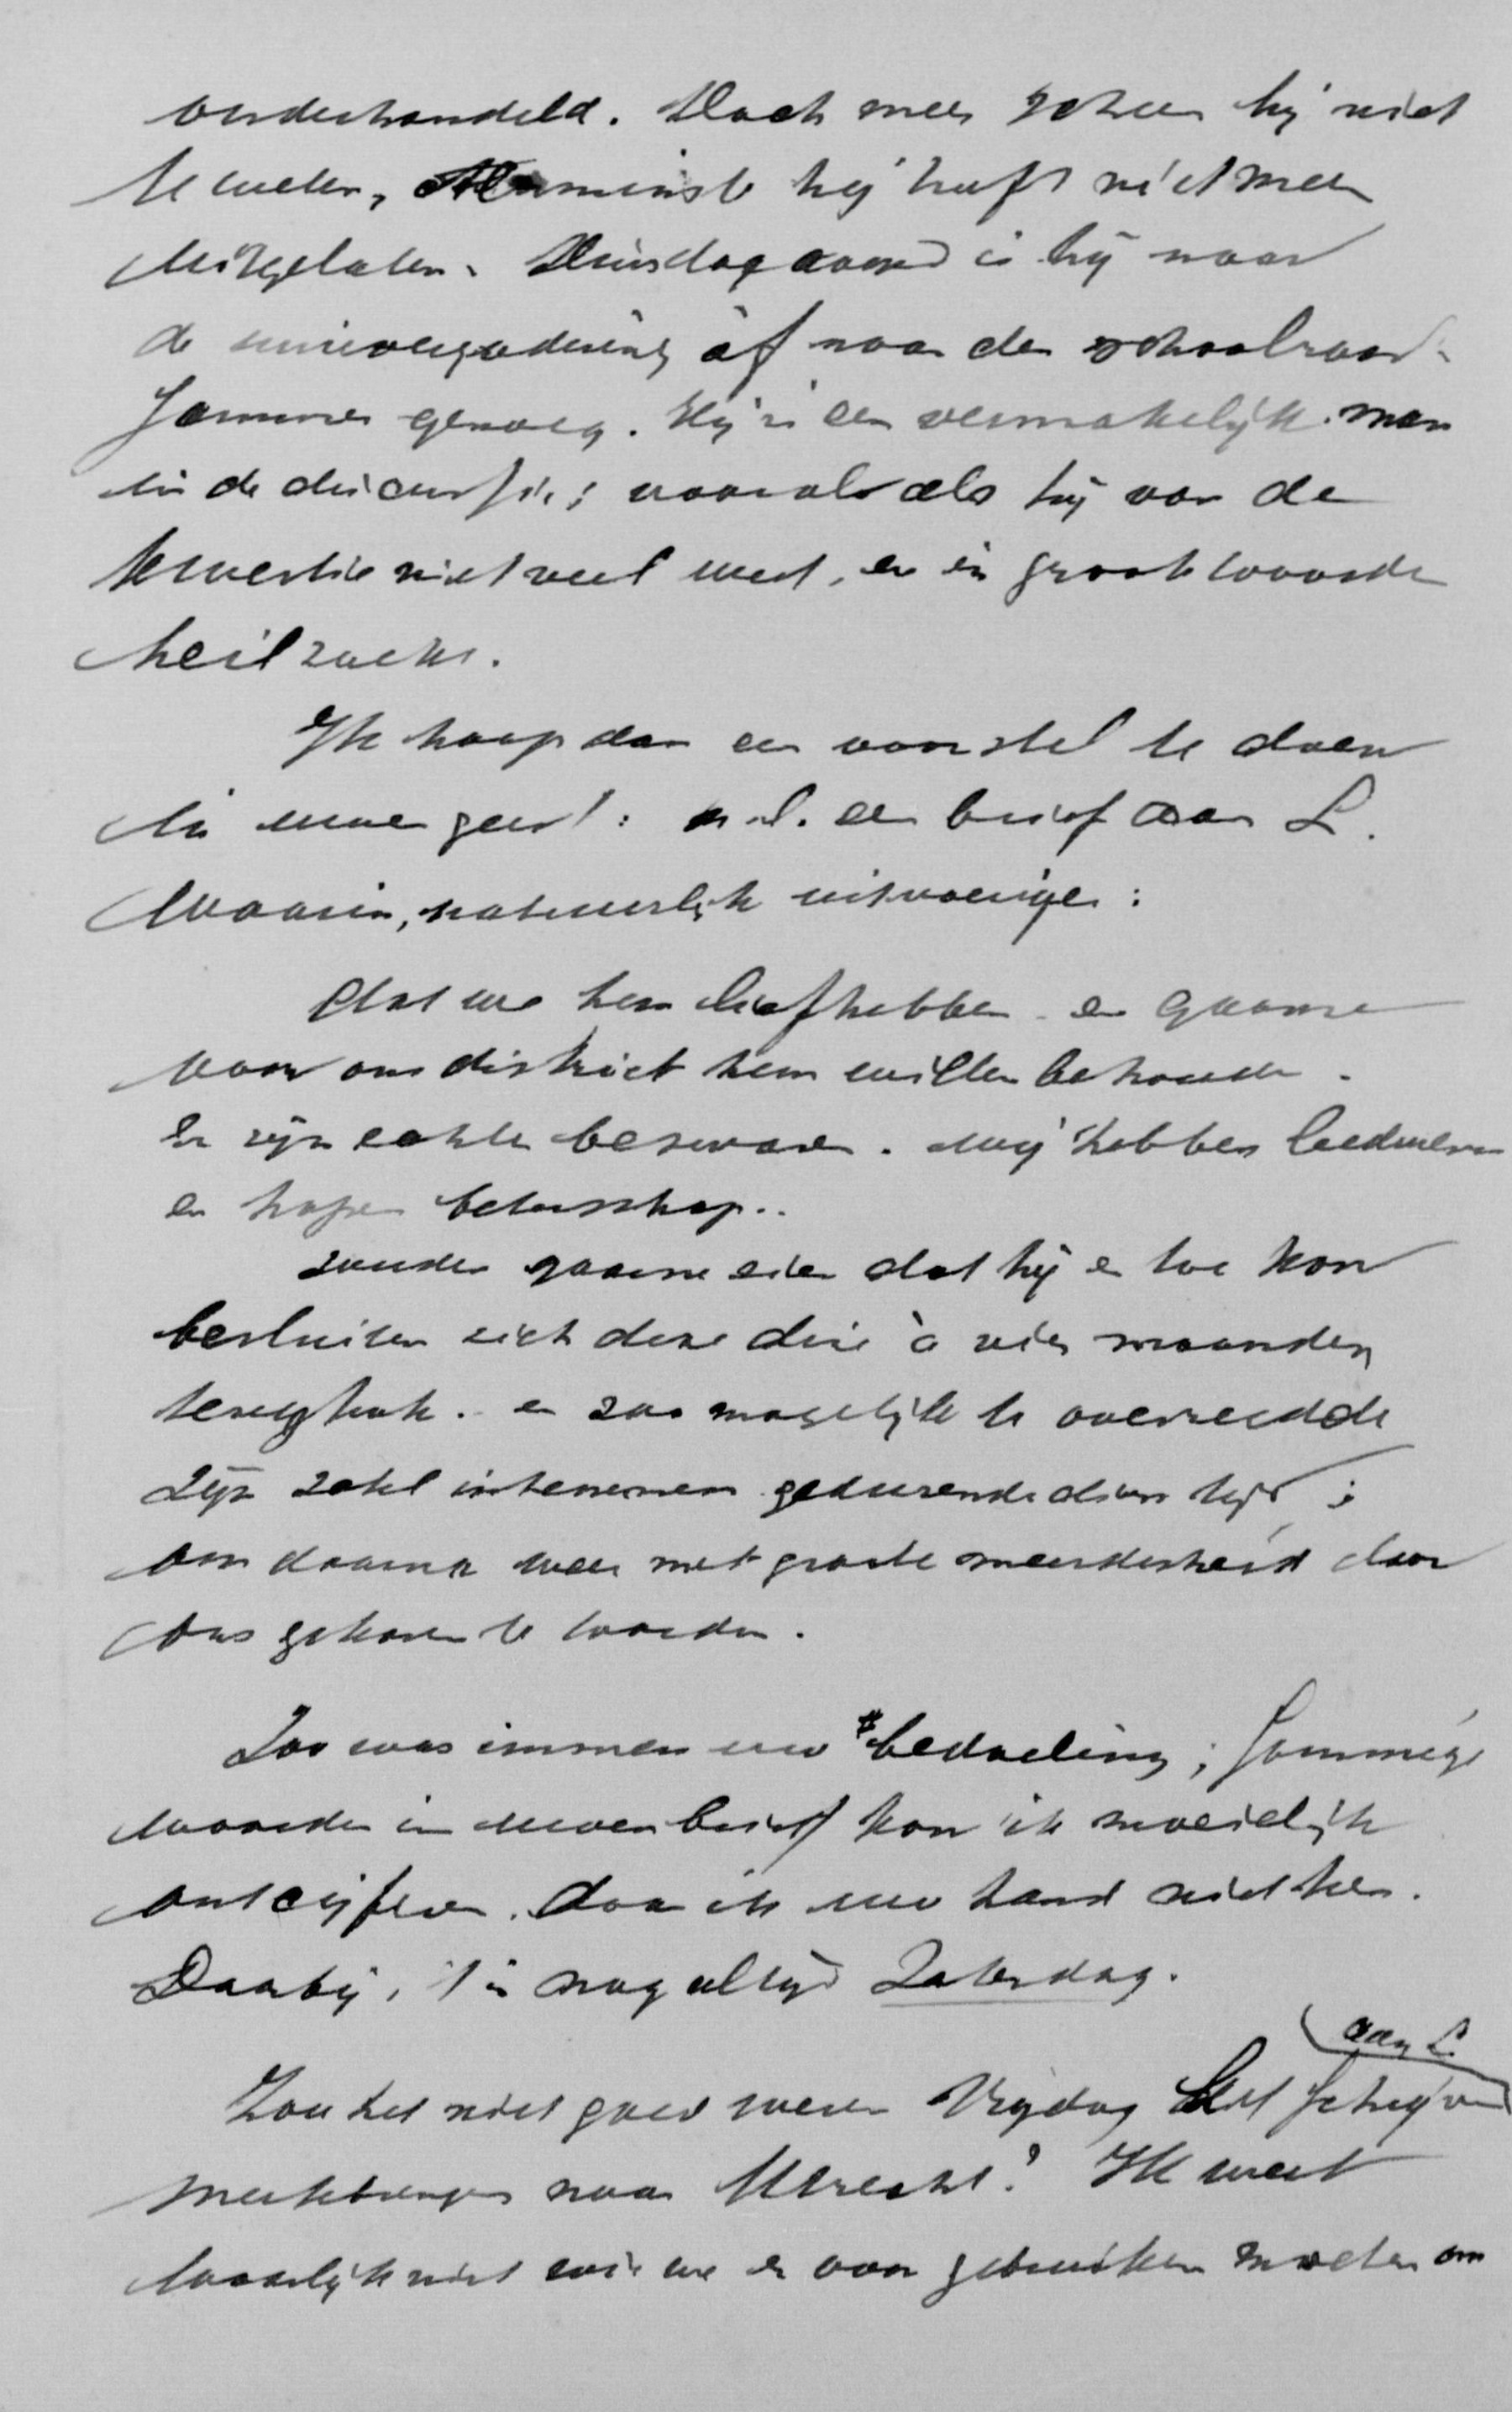 onderhandeld. Doch meer scheen hij niet
te weten, Tenminste hij heeft niet meer
uitgelaten. Dinsdagavond is hij naar
de unievergadering of naar den schoolraad.
Jammer genoeg. Hij is een vermakelijk man
in de discussie; vooral als hij van de
kwestie niet veel weet, en in groote woorden
heil zoekt.
Ik hoop dan een voorstel te doen
in uwen geest: n.l. een brief aan L.
Waarin, natuurlijk uitvoeriger:
dat we hem liefhebben en gaarne
voor ons district hem willen behouden.
Er zijn echter bezwaren. Wij hebben leedwezen
en hopen beterschap..
zouden gaarne zien dat hij er toe kon
besluiten zich deze drie à vier maanden
terugtrok. en zoo mogelijk te
zijn zetel innemen gedurende dien tijd;
om daarna weer met groote meerderheid door
ons gekozen te worden.
Zoo was immers uw bedoeling; Sommige
woorden in uwen brief kon ik moeielijk
ontcijferen. daar ik uw hand niet ken.
Daarbij, 't is nog altijd Zaterdag.
aan L.
Zou het niet goed wezen Vrijdag het schrijven
meetebrengen naar Utrecht? Ik weet
waarlijk niet wie we er voor gebruiken moeten om